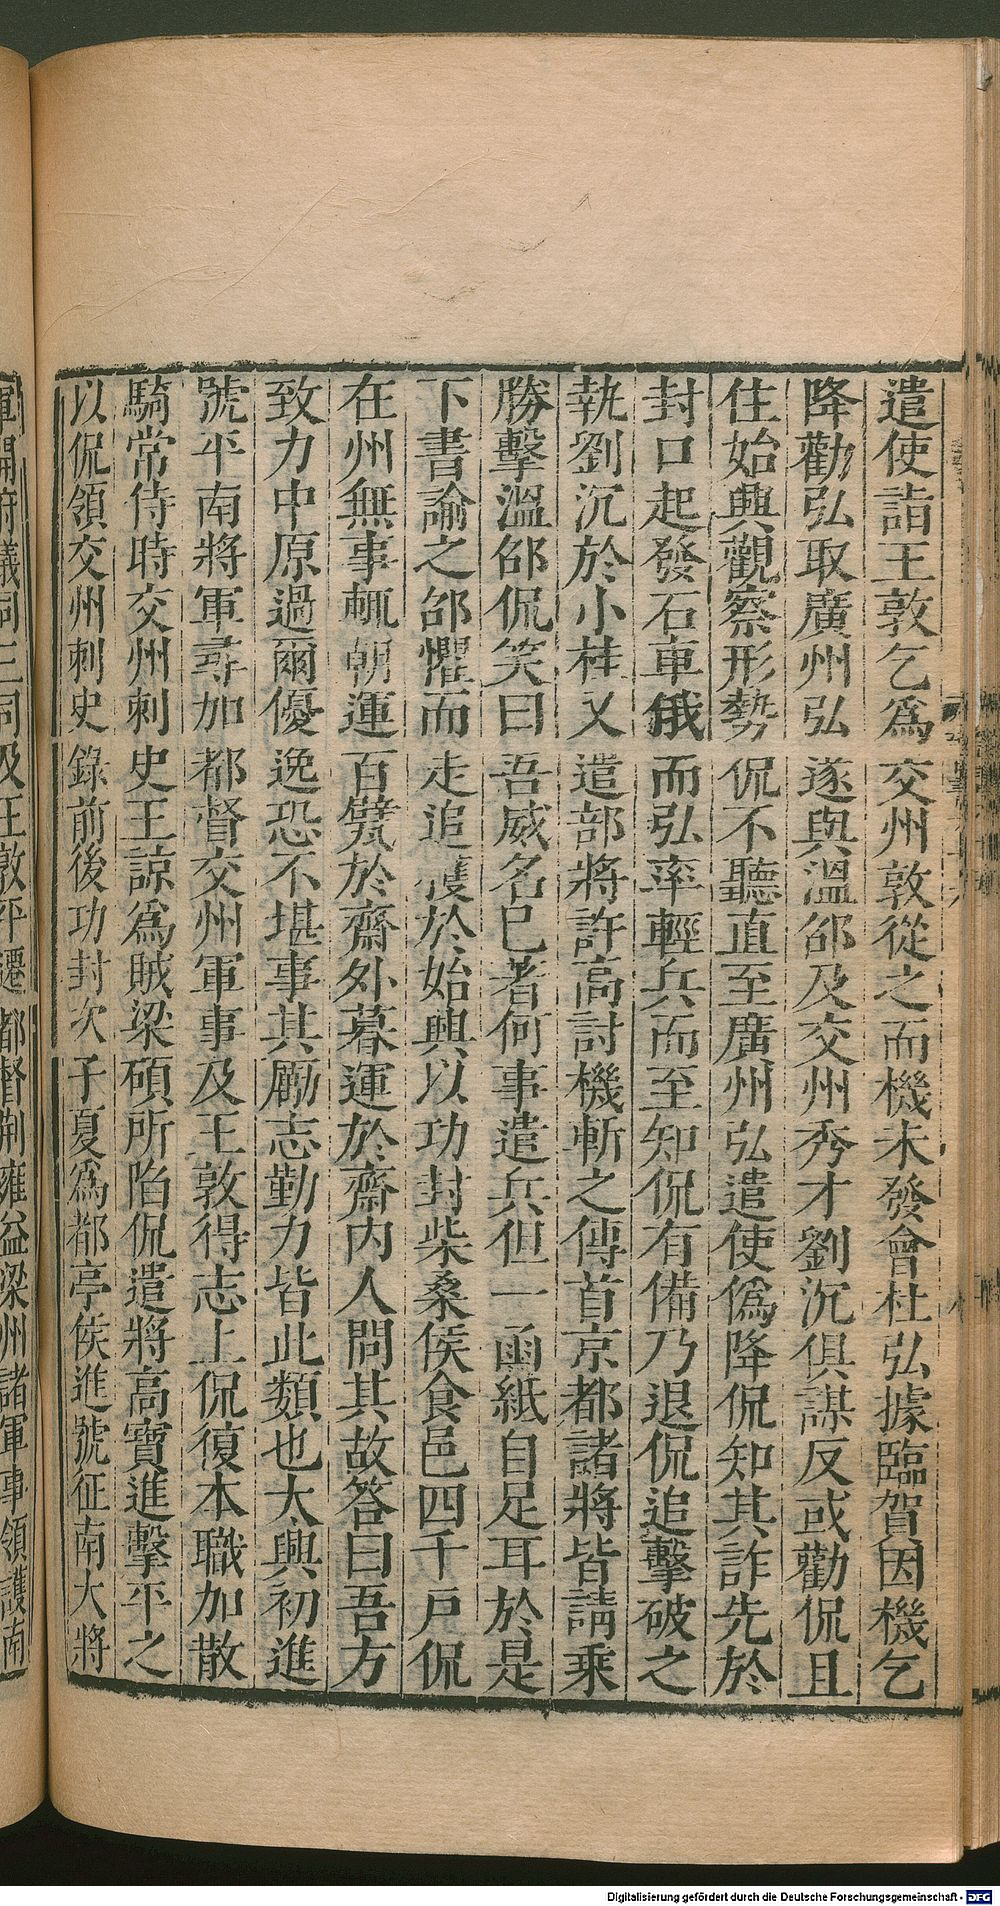 遣使詣王敦乞爲交州敦從之而機未發會杜弘據臨賀因機乞
降勸弘取廣州弘遂與溫邵及交州秀才劉沉俱謀反或勸侃且
住始興觀察形勢侃不聽直至廣州弘遣使僞降侃知其詐先於
封口起發石車俄而弘率輕兵而至知侃有備乃退侃追擊破之
執劉沉於小桂又遣部將許高討機斬之傳首京都諸將皆請乘
勝擊溫邵侃笑曰吾威名已著何事遣兵但一函紙自足耳於是
下書諭之邵懼而走追獲於始興以功封柴桑侯食邑四千戶侃
在州無事輒朝運百甓於齋外暮運於齋內人問其故答曰吾方
致力中原過爾優逸恐不堪事其勵志勤力皆此類也太興初進
號平南將軍尋加都督交州軍事及王敦得志上侃復本職加散
騎常侍時交州刺史王諒爲賊梁碩所陷侃遣將高寶進擊平之
以侃領交州刺史錄前後功封次子夏爲都亭侯進號征南大將
軍開府儀同三司及王敦平遷都督荊雍益梁州諸軍事領護南
Digitalisierung gefördert durch die Deutsche Forschungsgemeinschaft - DFG